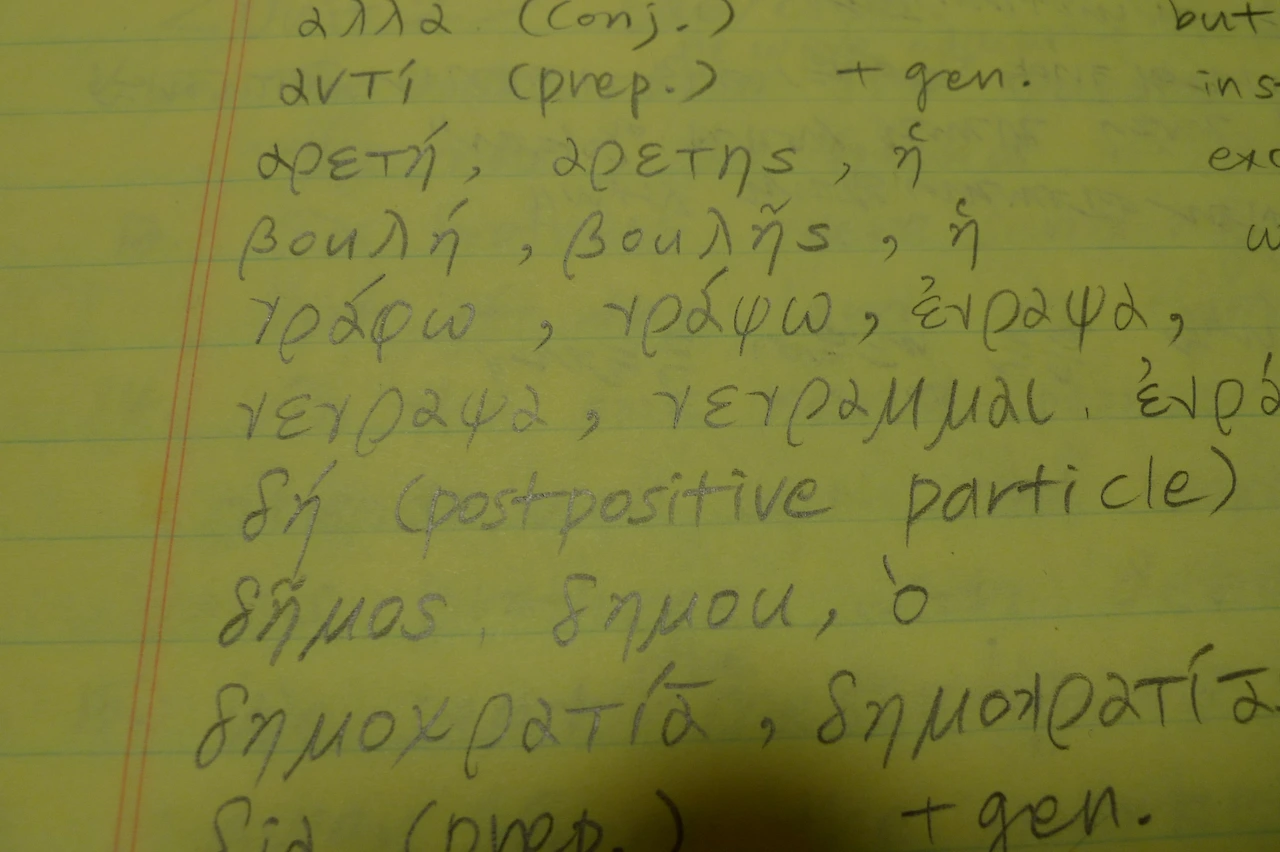 αλλα (conj.) but
αντί (prep.) + gen.
αρετή, αρετης, ἡ
βουλή, βουλῆς, ἡ
γράφω, γράψω, ἐγραψα,
γεγραφα, γεγραμμαι.
δή (postpositive particle)
δῆμος, δημου, ὁ
δημοκρατίᾱ, δημοκρατίᾱ
δια (prep.) + gen.